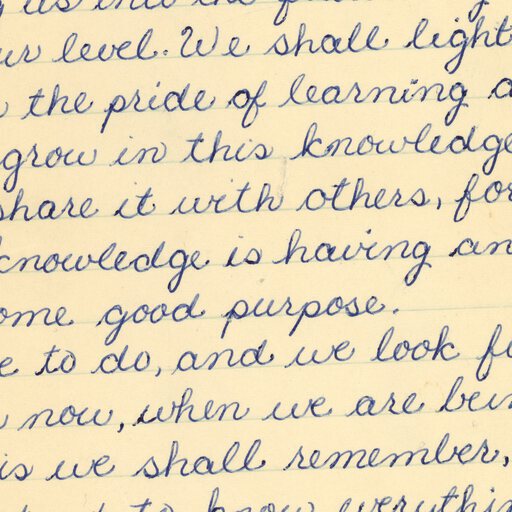 us into the
ur level. We shall light
the pride of learning a
grow in this knowledge
share it with others, for
knowledge is having an
ome good purpose.
e to do, and we look fo
now, when we are bein
is we shall remember,
to know everythin